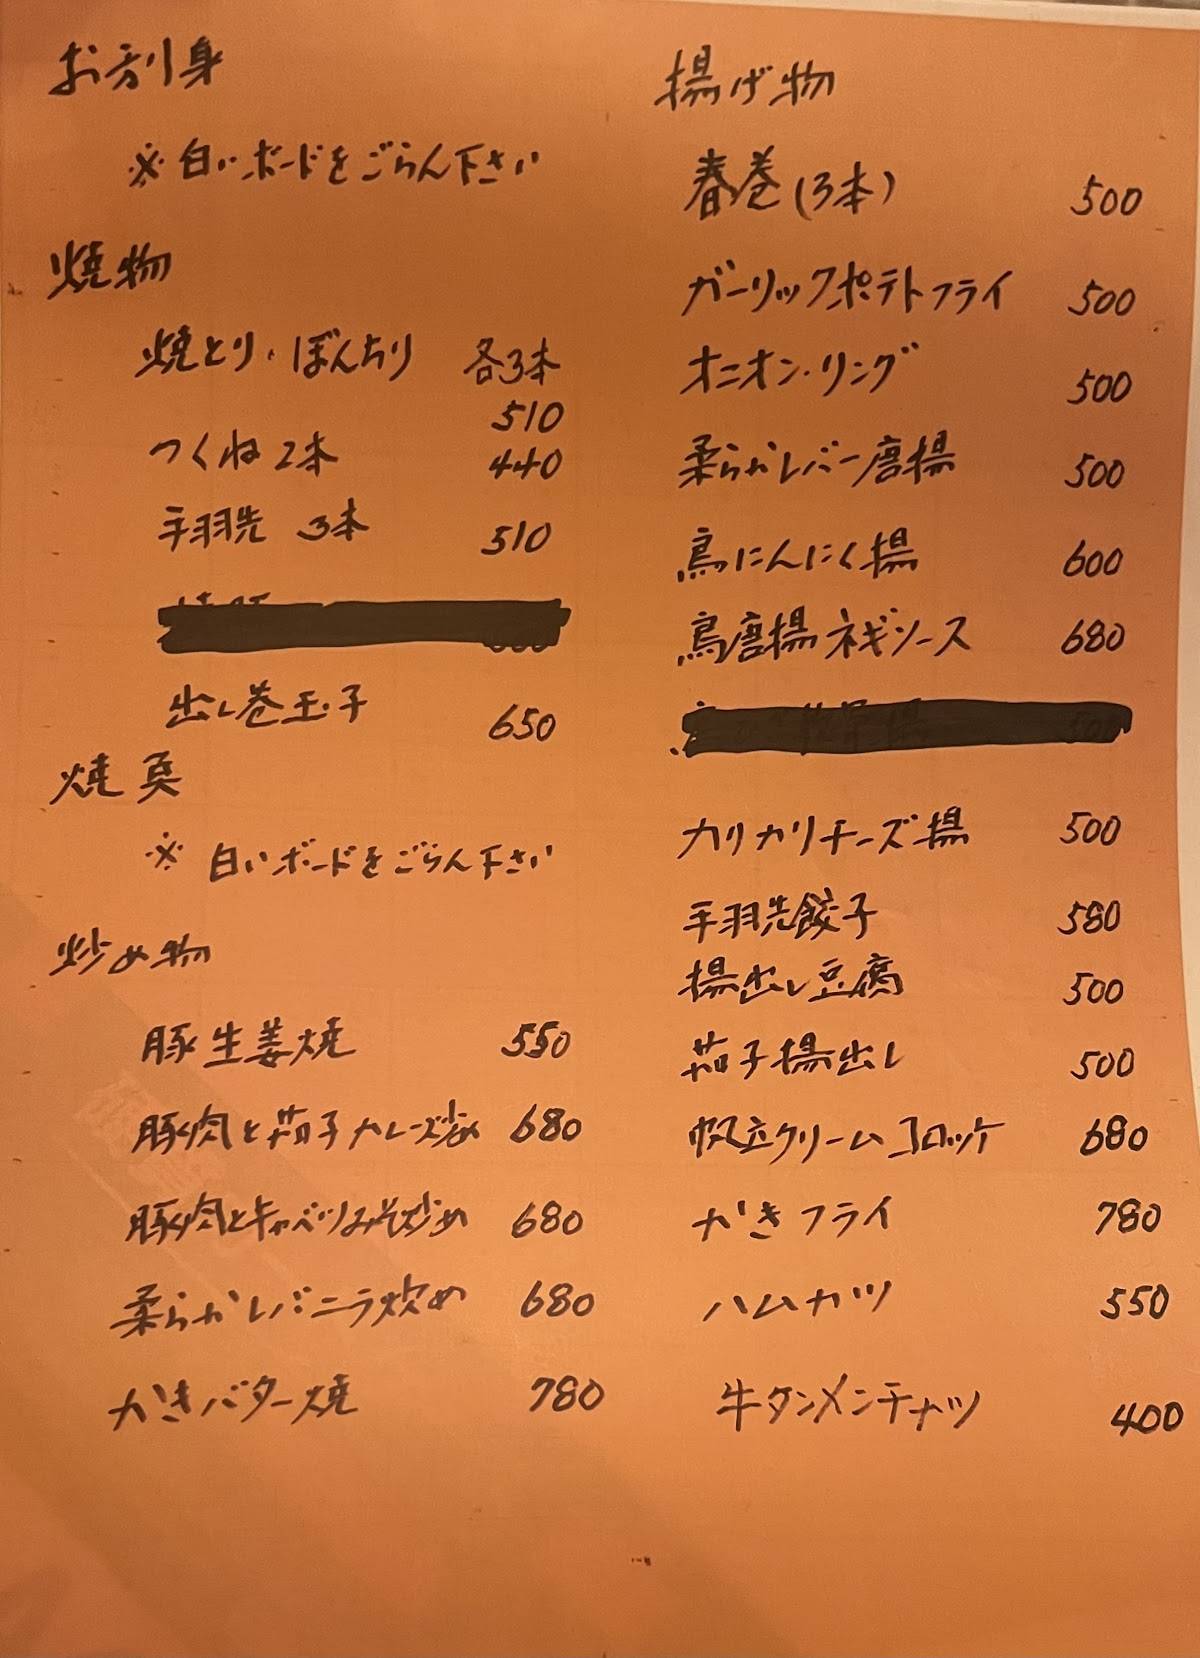 お刺身
※白いボードをごらん下さい
焼物
焼とり・ぼんちり 各3本
510
つくね2本 440
手羽先 3本 510
出し巻玉子 650
焼魚
※白いボードをごらん下さい
炒め物
豚生姜焼 550
豚肉と茄子カレーズ炒め 680
豚肉とキャベツみそ炒め 680
柔らかレバニラ炒め 680
かきバター焼 780
揚げ物
春巻(3本) 500
ガーリックポテトフライ 500
オニオン・リング 500
柔らかレバー唐揚 500
鳥にんにく揚 600
鳥唐揚ネギソース 680
カリカリチーズ揚 500
手羽先餃子 580
揚出し豆腐 500
茄子揚出し 500
帆立クリームコロッケ 680
かきフライ 780
ハムカツ 550
牛タンメンチカツ 400